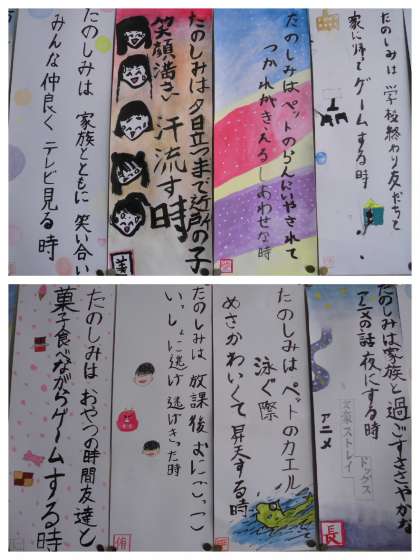 たのしみは 学校終わり友だちと
家に帰って ゲームする時
たのしみは ペットのらんにいやされて
つかれがきえるしあわせな時
たのしみは夕日立つまで近所の子
笑顔満ちる 汗流す時
たのしみは 家族とともに 笑い合い
みんな仲良く テレビ見る 時
たのしみは家族と過ごすささやかな
アニメの話夜にする時
アニメ
文豪ストレイ
ドッグス
長
たのしみは ペットのカエル 泳ぐ際
めさかわいくて 昇天する時
たのしみは 放課後おにごっこ
いっしょに逃げ 逃げきった時
たのしみは おやつの時間友達と
菓子食べながらゲームする時